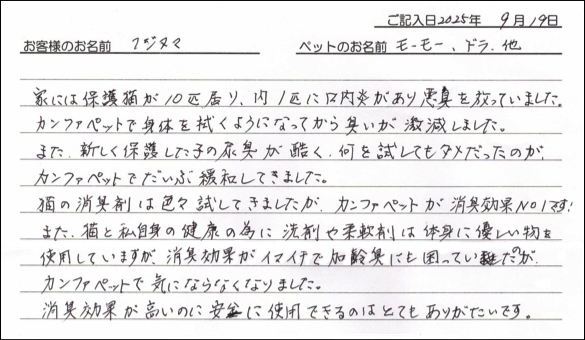 ご記入日2025年 9月19日
お客様のお名前 フジタマ ペットのお名前 モーモー、ドラ、他
家には保護猫が10匹居り、内1匹に口内炎があり悪臭を放っていました。
カンファペットで身体を拭くようになってから臭いが激減しました。
また、新しく保護した子の尿臭が酷く、何を試してもダメだったのが、
カンファペットでだいぶ緩和してきました。
猫の消臭剤は色々試してきましたが、カンファペットが消臭効果No1です!
また、猫と私自身の健康の為に洗剤や柔軟剤は体身に優しい物を
使用していますが、消臭効果がイマイチで加齢臭にも困っていたのが、
カンファペットで気にならなくなりました。
消臭効果が高いのに安全に使用できるのはとてもありがたいです。